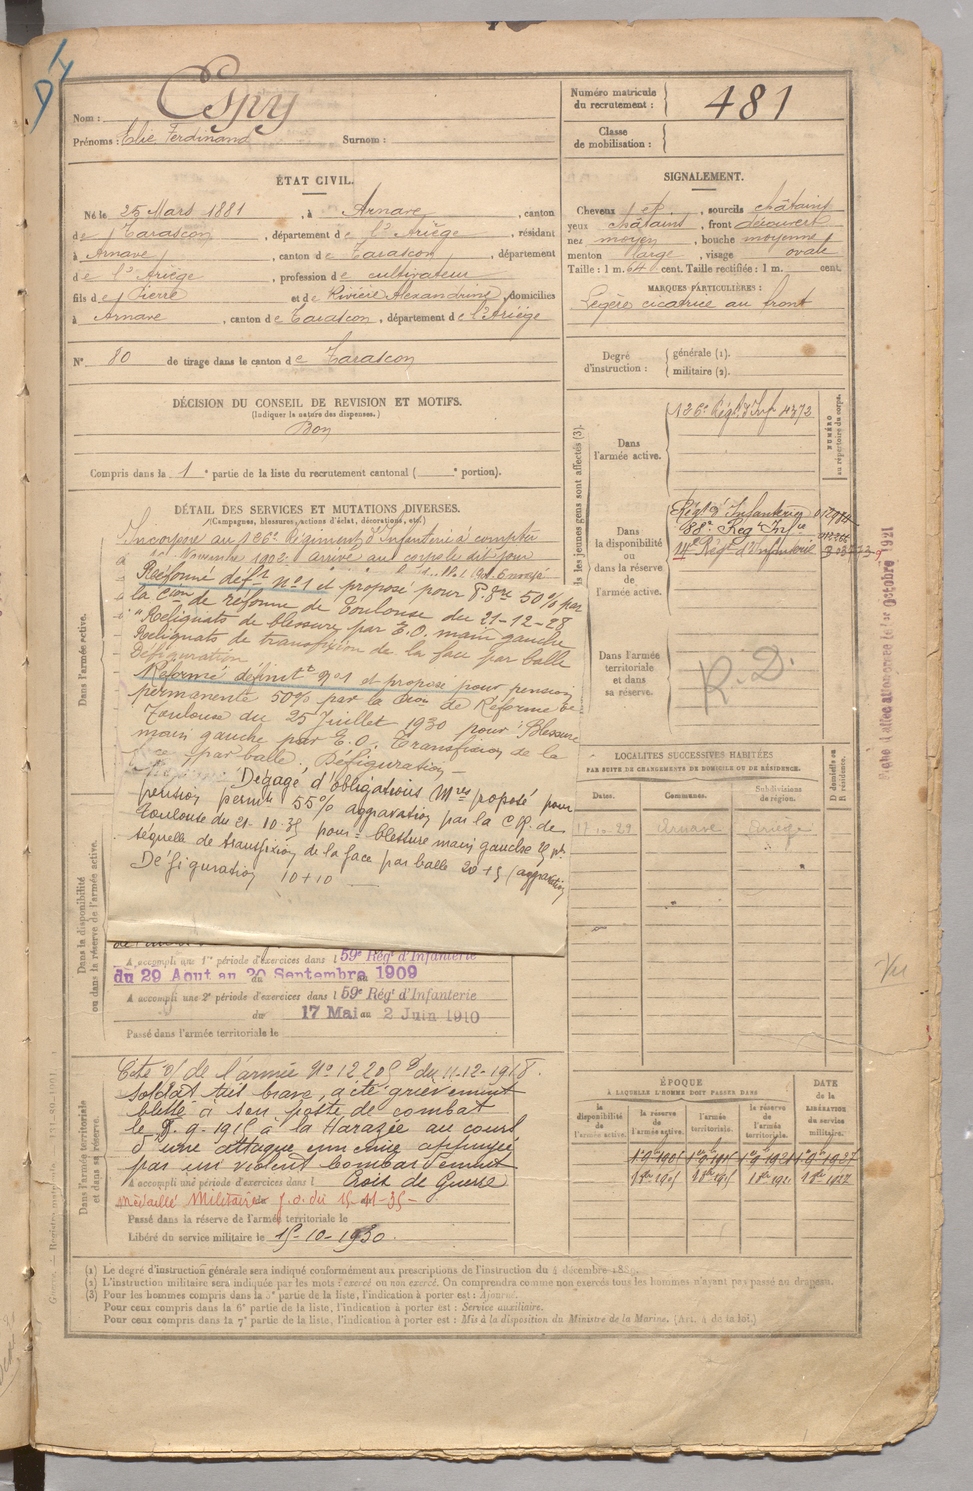 Nom : Espy
Prénoms : Elie Ferdinand Surnom :
Numéro matricule du recrutement : 481
Classe de mobilisation :
ÉTAT CIVIL.
Né le 25 Mars 1881, à Arnave, canton
de Tarascon, département de l'Ariège, résidant
à Arnave, canton de Tarascon, département
de l'Ariège, profession de cultivateur
fils de Pierre et de Rivière Alexandrine, domiciliés
à Arnave, canton de Tarascon, département de l'Ariège
N° 80 de tirage dans le canton de Tarascon
SIGNALEMENT.
Cheveux et, sourcils châtains
yeux châtains, front découvert
nez moyen, bouche moyenne
menton large, visage ovale
Taille : 1 m. 64 cent. Taille rectifiée : 1 m. cent.
MARQUES PARTICULIÈRES :
Légère cicatrice au front
Degré d'instruction : générale (1).
militaire (2).
DÉCISION DU CONSEIL DE REVISION ET MOTIFS.
(Indiquer la nature des dispenses.)
Bon
Compris dans la 1e partie de la liste du recrutement cantonal ( e portion).
DÉTAIL DES SERVICES ET MUTATIONS DIVERSES.
(Campagnes, blessures, actions d'éclat, décorations, etc.)
Dans l'armée active.
Incorporé au 126e Régiment d'Infanterie à compter
Novembre 1902 arrivé au corps le dit jour
Réformé défif n°1 et proposé pour P. 50% par
la Cion de réforme de Toulouse du 21-12-28
"Reliquats de blessure par E.O. main gauche
Reliquats de transfixion de la face par balle
Défiguration
Réformé définitt n°1 et proposé pour pension
permanente 50% par la Cion de Réforme de
Toulouse du 25 Juillet 1930 pour : Blessure
main gauche par E.O. Transfixion de la
face par balle. Défiguration
Dégagé d'obligations Mres proposé pour
pension permte 55% aggravation par la C.R. de
Toulouse du 21-10-35 pour = blessure main gauche
séquelle de transfixion de la face par balle 20+5 (aggravation
Défiguration 10+10
Dans la disponibilité ou dans la réserve de l'armée active.
A accompli une 1re période d'exercices dans l 59e Régt d'Infanterie
du 29 Aout au 20 Septembre 1909
A accompli une 2e période d'exercices dans l 59e Régt d'Infanterie
du 17 Mai au 2 Juin 1910
Passé dans l'armée territoriale le
Dans l'armée territoriale et dans sa réserve.
Cité o/ de l'armée N° 12205 D du 11-12-1918.
Soldat très brave, a été grièvement
blessé à son poste de combat
le 8.9.1915 à la Harazée au cours
d'une attaque ennemie appuyée
par un violent bombardement
A accompli une période d'exercices dans l Croix de Guerre
Médaillé Militaire J.O. du 15-11-35-
Passé dans la réserve de l'armée territoriale le
Libéré du service militaire le 15-10-1930.
les jeunes gens sont affectés (3).
NUMÉRO au répertoire du corps.
Dans l'armée active.
126e Régt d'Inf 4372
Dans la disponibilité ou dans la réserve de l'armée active.
Régt d'Infanterie
88e Reg Infie
14e Régt d'Infanterie
Dans l'armée territoriale et dans sa réserve.
R.D.
LOCALITÉS SUCCESSIVES HABITÉES
PAR SUITE DE CHANGEMENTS DE DOMICILE OU DE RÉSIDENCE.
Dates. Communes. Subdivisions de région. D domicile ou R résidence.
17-10-29 Arnave Ariège
ÉPOQUE
À LAQUELLE L'HOMME DOIT PASSER DANS
DATE DE LA LIBÉRATION du service militaire.
la disponibilité de l'armée active.
la réserve de l'armée active.
l'armée territoriale.
la réserve de l'armée territoriale.
Vu
(1) Le degré d'instruction générale sera indiqué conformément aux prescriptions de l'instruction du 4 décembre 1889.
(2) L'instruction militaire sera indiquée par les mots : exercé ou non exercé. On comprendra comme non exercés tous les hommes n'ayant pas passé au drapeau.
(3) Pour les hommes compris dans la 5e partie de la liste, l'indication à porter est : Ajourné.
Pour ceux compris dans la 6e partie de la liste, l'indication à porter est : Service auxiliaire.
Pour ceux compris dans la 7e partie de la liste, l'indication à porter est : Mis à la disposition du Ministre de la Marine. (Art. 4 de la loi.)